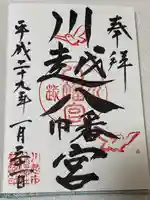 奉拝
川越八幡宮
平成二十九年一月二日